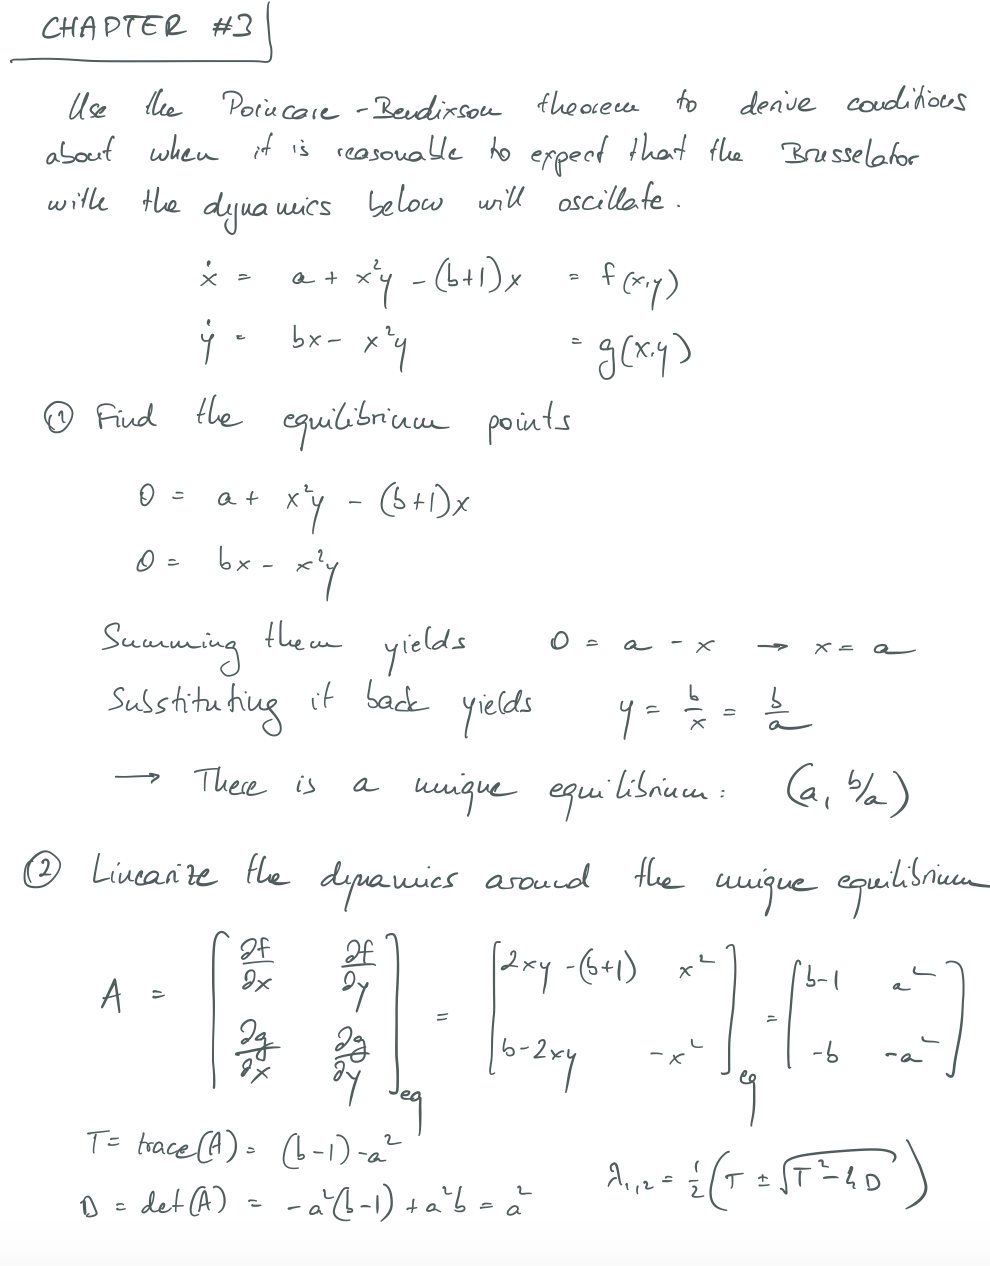 CHAPTER #3
Use the Poincare - Bendixson theorem to derive conditions
about when it is reasonable to expect that the Brusselator
with the dynamics below will oscillate.
ẋ = a + x²y - (b+1)x = f(x,y)
ẏ = bx - x²y = g(x,y)
① Find the equilibrium points
0 = a + x²y - (b+1)x
0 = bx - x²y
Summing them yields 0 = a - x → x = a
Substituting it back yields y = b/x = b/a
→ There is a unique equilibrium: (a, b/a)
② Linearize the dynamics around the unique equilibrium
A = [∂f/∂x ∂f/∂y; ∂g/∂x ∂g/∂y]eq = [2xy - (b+1) x²; b-2xy -x²]eq = [b-1 a²; -b -a²]
T = trace(A) = (b-1) - a²
D = det(A) = -a²(b-1) + a²b = a² λ₁,₂ = ½(T ± √T²-4D)